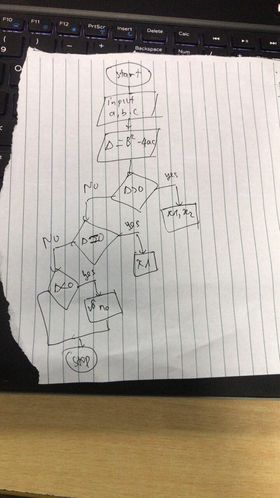 F10
F11
F12
PrtScr
Insert
Delete
Backspace
Num
start
input
a, b, c
Δ = B² - 4ac
Δ>0
yes
No
x1, x2
Δ=0
yes
No
x1
Δ<0
yes
no
stop